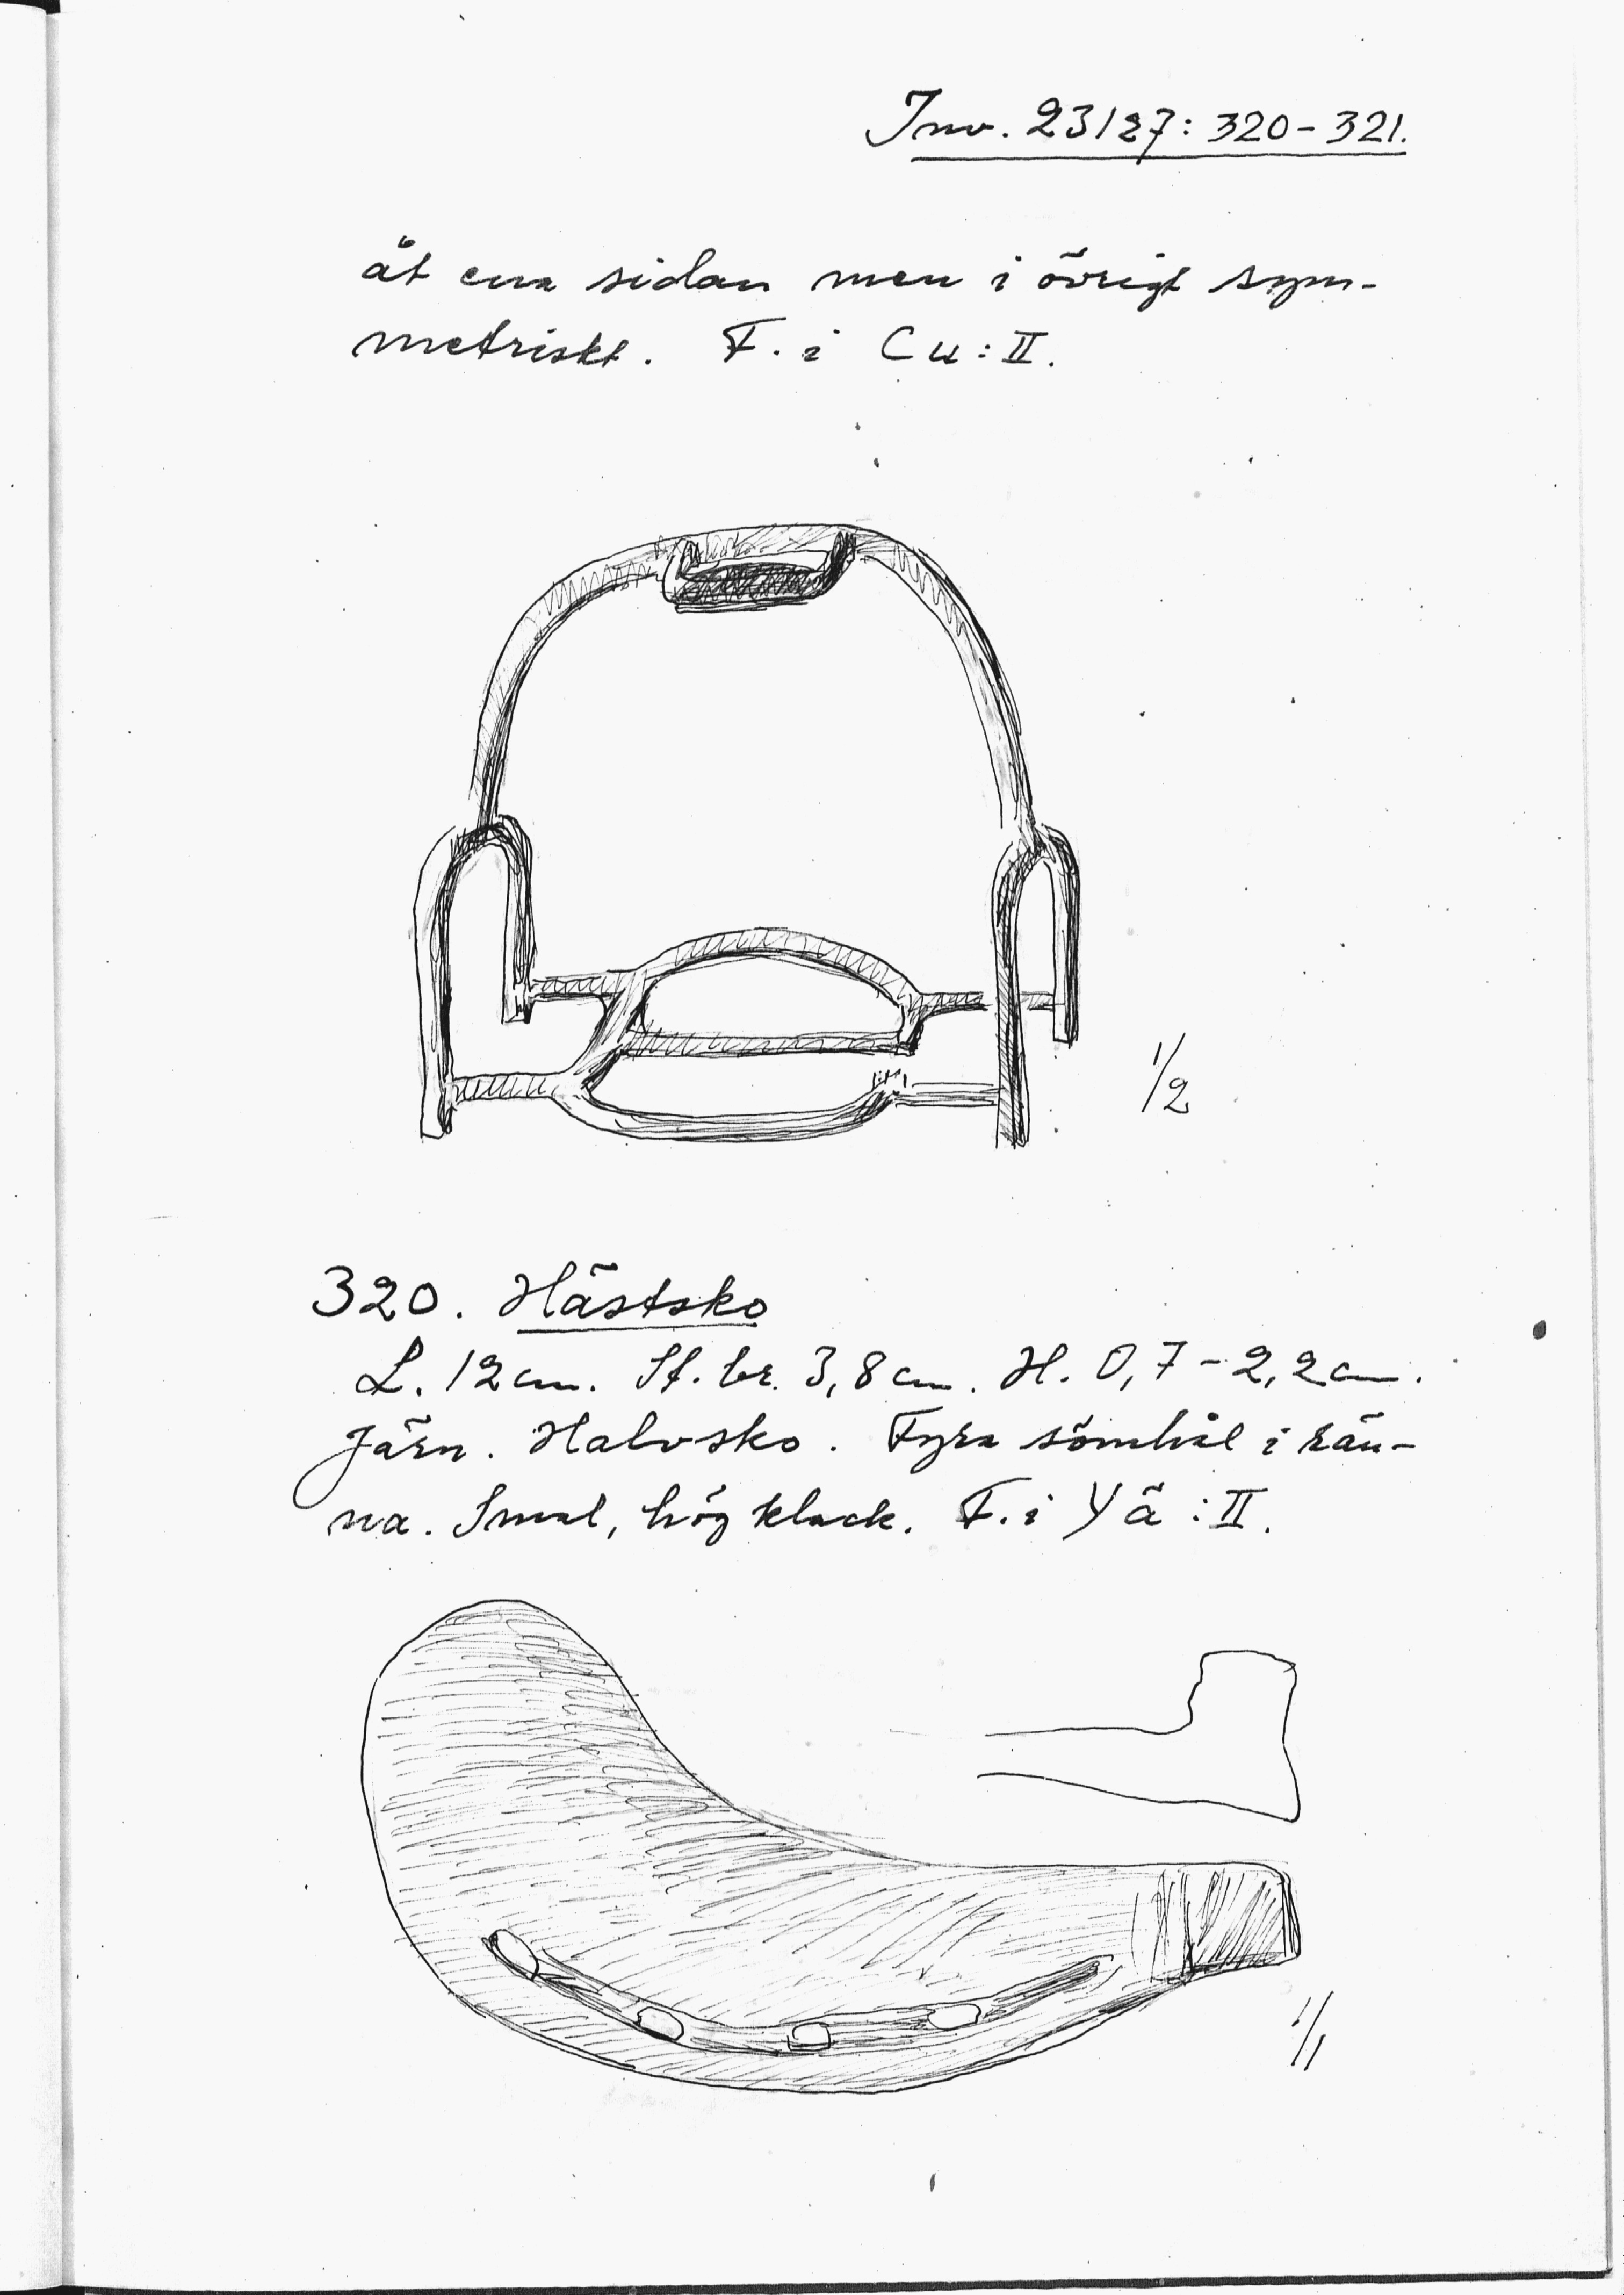 Inv. 23127: 320-321.
åt ena sidan men i övrigt sym-
metriskt. F. i Cu:II.
1/2
320. Hästsko
L. 12 cm. St. br. 3,8 cm. H. 0,7-2,2 cm.
Järn. Halvsko. Fyra sömhål i rän-
na. Smal, hög klack. F. i Yä:II.
1/1